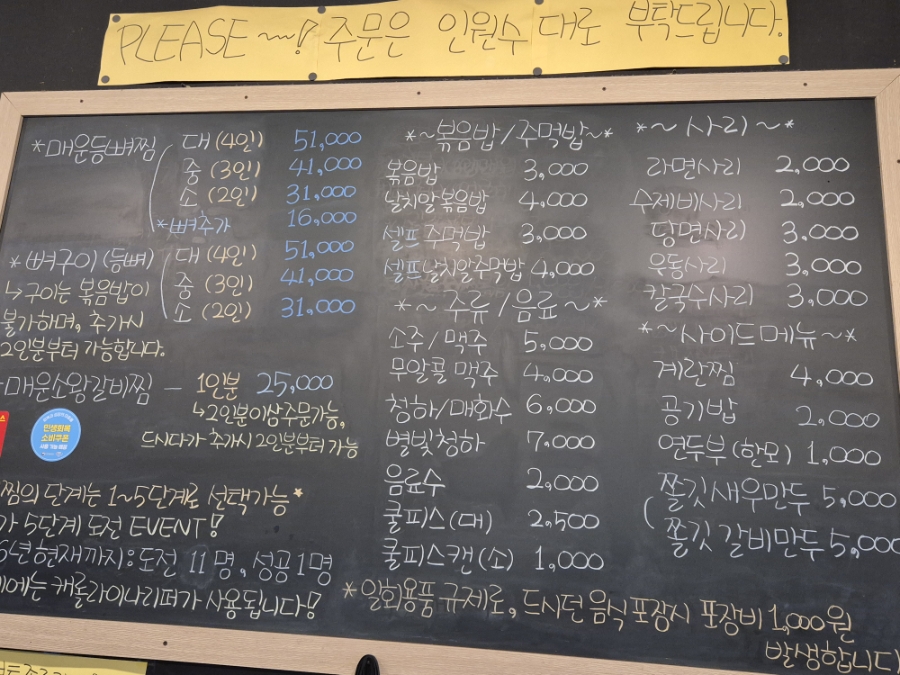 PLEASE ~~! 주문은 인원수 대로 부탁드립니다.
*매운등뼈찜 대 (4인) 51,000
중 (3인) 41,000
소 (2인) 31,000
*뼈추가 16,000
*뼈구이 (등뼈) 대 (4인) 51,000
중 (3인) 41,000
소 (2인) 31,000
↳구이는 볶음밥이
불가하며, 추가시
2인분부터 가능합니다.
매운소왕갈비찜 - 1인분 25,000
↳2인분이상주문가능,
드시다가 추가시 2인분부터 가능
민생회복
소비쿠폰
찜의 단계는 1~5단계로 선택가능*
5단계 도전 EVENT!
현재까지: 도전 11명, 성공 1명
에는 캐롤라이나리퍼가 사용됩니다!
*~볶음밥/주먹밥~*
볶음밥 3,000
날치알볶음밥 4,000
셀프 주먹밥 3,000
셀프날치알주먹밥 4,000
*~주류/음료~*
소주/맥주 5,000
무알콜 맥주 4,000
청하/매화수 6,000
별빛청하 7,000
음료수 2,000
쿨피스(대) 2,500
쿨피스캔(소) 1,000
*~사리~*
라면사리 2,000
수제비사리 2,000
당면사리 3,000
우동사리 3,000
칼국수사리 3,000
*~사이드메뉴~*
계란찜 4,000
공기밥 2,000
연두부(한모) 1,000
쫄깃새우만두 5,000
쫄깃 갈비만두 5,000
*일회용품 규제로, 드시던 음식 포장시 포장비 1,000원
발생합니다